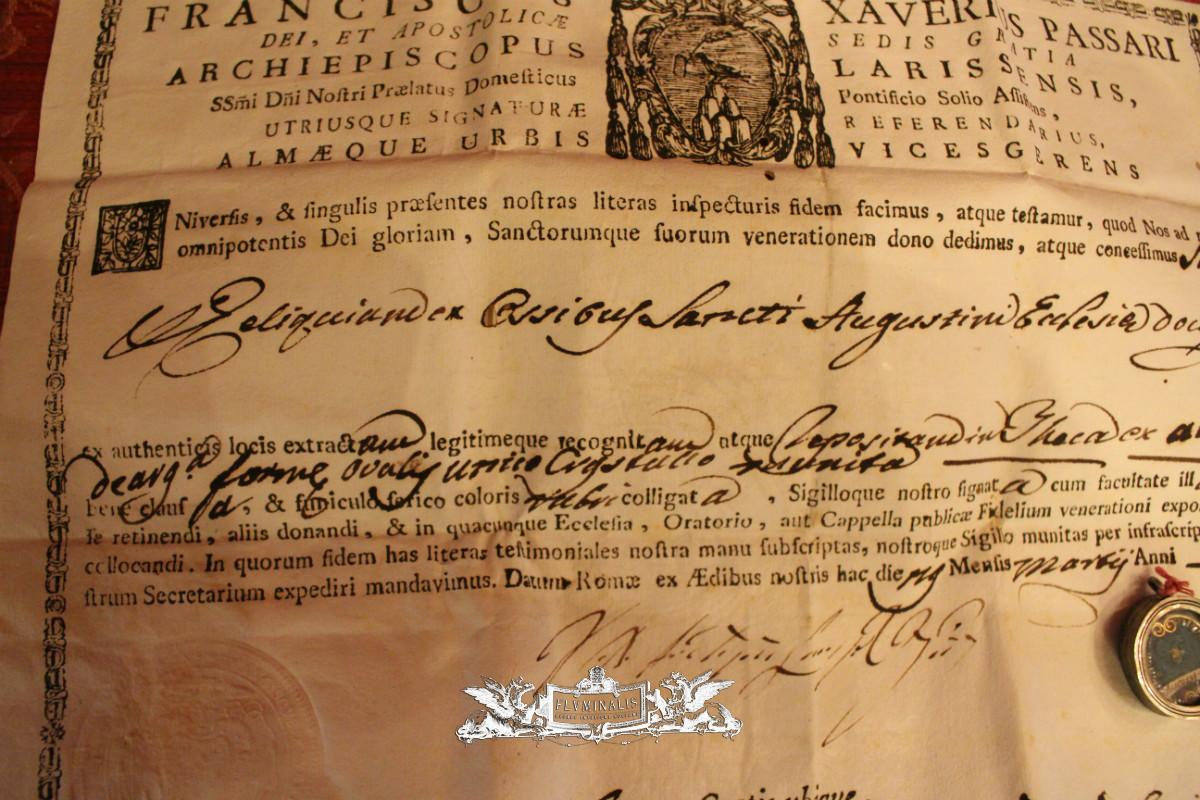 FRANCISCUS XAVERIUS PASSARI
DEI, ET APOSTOLICÆ SEDIS GRATIA
ARCHIEPISCOPUS LARISSENSIS,
SSm̃i Dñi Noſtri Prælatus Domeſticus Pontificio Solio Aſſiſtens,
UTRIUSQUE SIGNATURÆ REFERENDARIUS,
ALMÆQUE URBIS VICESGERENS
UNiverſis, & ſingulis præſentes noſtras literas inſpecturis fidem facimus, atque teſtamur, quod Nos ad
omnipotentis Dei gloriam, Sanctorumque ſuorum venerationem dono dedimus, atque conceſſimus
Reliquiam ex Ossibus Sancti Augustini Ecclesia doc
ex authenticis locis extractam legitimeque recognitam atque Repositam in Theca ex
de arg.a forme ovalis unico Crystallo munita
bene clauſ a, & funiculo ſerico coloris rubri colligat a, Sigilloque noſtro ſignat a cum facultate ill
ſe retinendi, aliis donandi, & in quacunque Eccleſia, Oratorio, aut Cappella publicæ Fidelium venerationi expo
collocandi. In quorum fidem has literas teſtimoniales noſtra manu ſubſcriptas, noſtroque Sigillo munitas per infraſcrip
ſtrum Secretarium expediri mandavimus. Datum Romæ ex Ædibus noſtris hac die Menſis Martij Anni
FLVMINALIS